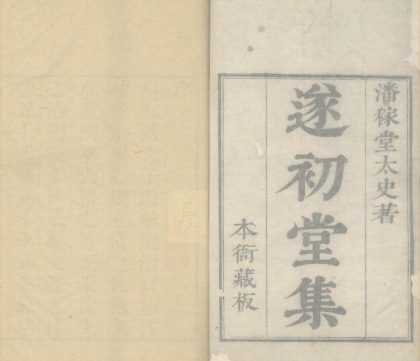 潘稼堂太史著
遂初堂集
本衙藏板